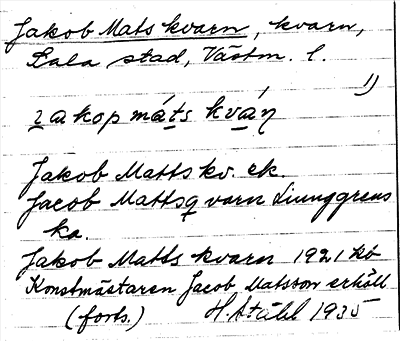 Jakob Mats kvarn, kvarn,
Sala stad, Västm. l.
1)
kváƞ
Jakob Matts kv. ek.
Jacob Mattsqvarn Liunggrens
ka.
Jakob Matts kvarn 1921 kb
Konstmästaren Jacob Matsson erhöll
(forts.) H. Ståhl 1935